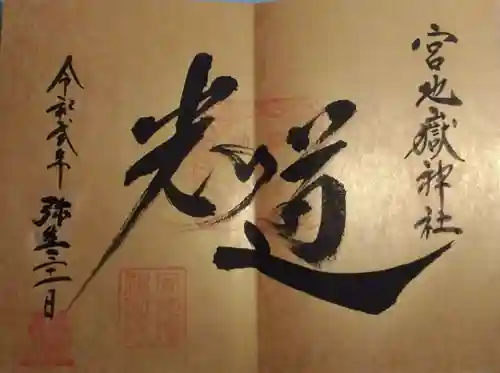 宮地嶽神社
光の道
令和弐年 弥生 日